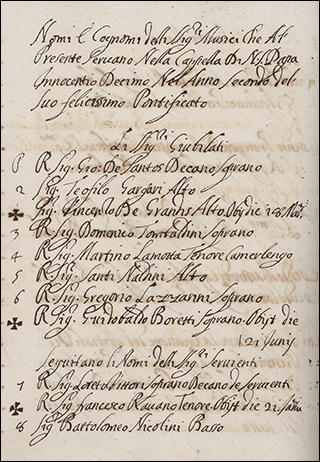 Nomi E Cognomi delli Sig.ri Musici Che Al
Presente Seruano Nella Cappella Di N.S. Papa
Innocentio Decimo Nel Anno Secondo del
suo felicissimo Pontificato
Li Sig.ri Giubilati
R Sig. Gio: De Santos Decano soprano
2 Sig. Teofilo Gargari Alto
✠ Sig. Vincenzo De Grandis Alto. Obijt die 18 Mar.
3 R Sig. Domenico Tombaldini soprano
4 R Sig. Martino Lamotta Tenore Camerlengo
5 R Sig. Santi Naldini Alto
6 R Sig. Gregorio Lazzarini soprano
✠ R Sig. Guidobaldo Boretti soprano. Obijt die
21 Junij
Seguitano li Nomi delli Sig.ri Seruienti
7 R. Sig. Loreto Vittori soprano Decano de Seruenti
✠ R. Sig. francesco Rauano Tenore. Obijt die 21
8 Sig. Bartolomeo Nicolini Basso